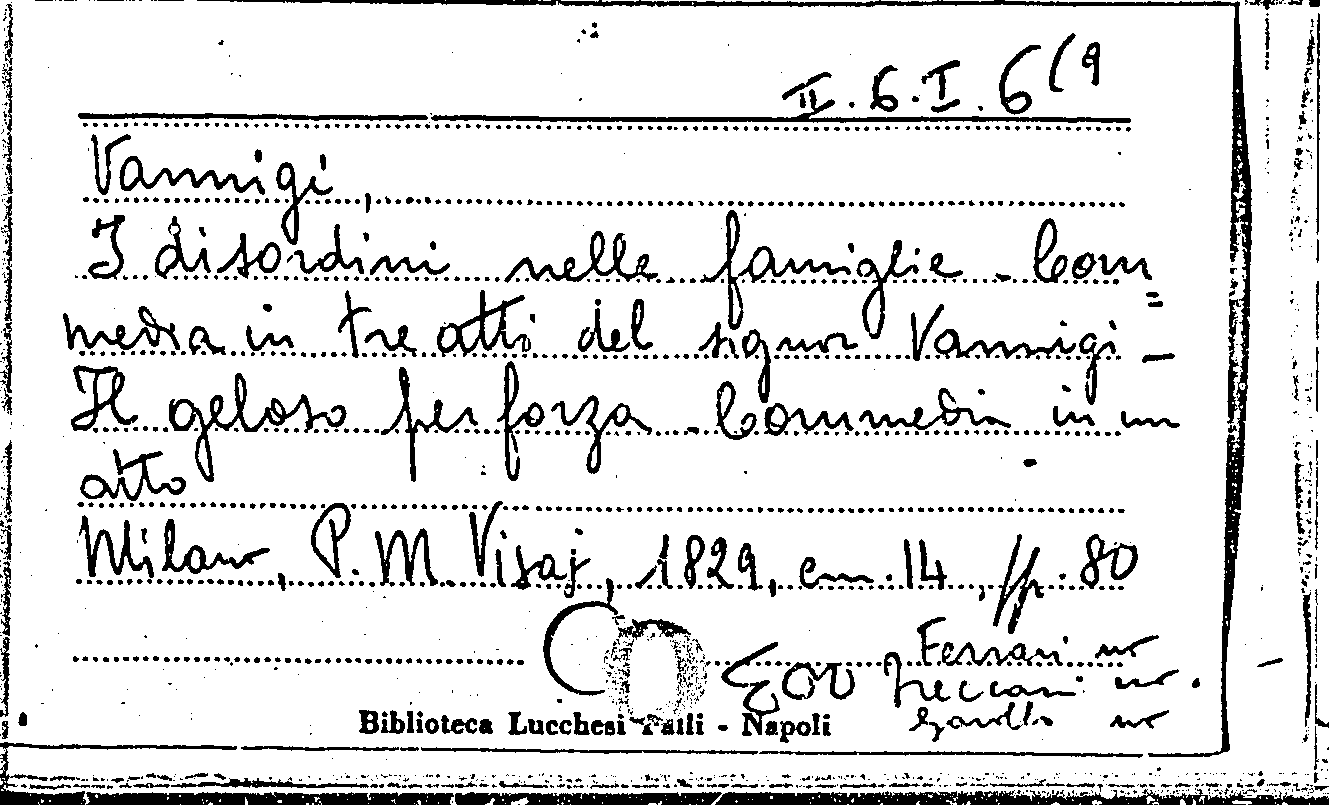 II.6.I.6(9
Vannigi,
I disordini nelle famiglie - Com=
media in tre atti del signor Vannigi -
Il geloso per forza - Commedia in un
atto
Milano, P. M. Visaj, 1829, cm. 14, pp. 80
Ferrari no
Treccani no.
Garollo no
Biblioteca Lucchesi Palli - Napoli